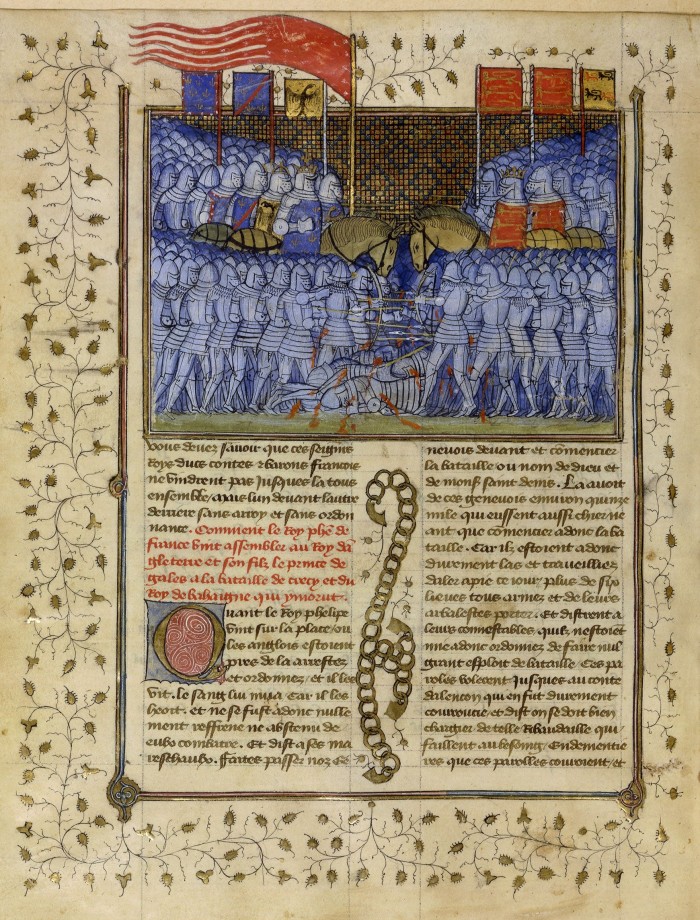 vous devez savoir que ces seigneurs
Roys ducs contes et barons francois
ne vindrent pas jusques la tous
ensemble mais lun devant lautre
derriere sans arroy et sans ordon
nance. Comment le Roy phe de
france vint assembler au Roy da
gleterre et son filz le prince de
gales a la bataille de crecy et du
Roy de bahaigne qui y morut.
Quant le Roy phelipe
vint sur la place ou
les anglois estoient
pres de la arrestez
et ordonnez et il les
vit. le sang lui mua Car il les
heoit. et ne se fust adonc nulle
ment reffrene ne abstenu de
eulx combatre. Et dist a ses ma
reschaulx. faites passer noz Ge
nevois devant et comencier
la bataille ou nom de dieu et
de mons saint denis. La avoit
de ces genevois environ quinze
mile qui eussent aussi chier ne
ant que comencier adonc la ba
taille. Car ilz estoient adonc
durement las et travailliez
daler a pie ce jour plus de six
lieues tous armez et de leurs
arbalestes porter. Et distrent a
leurs connestables. quilz nestoie
mie adonc ordonnez de faire nul
grant esploit de bataille Ces pa
roles volerent jusques au conte
dalencon qui en fut durement
courroucie et dist on se doit bien
chargier de telle Ribaudaille qui
faillent au besoing. Endementie
res que ces parolles couroient et